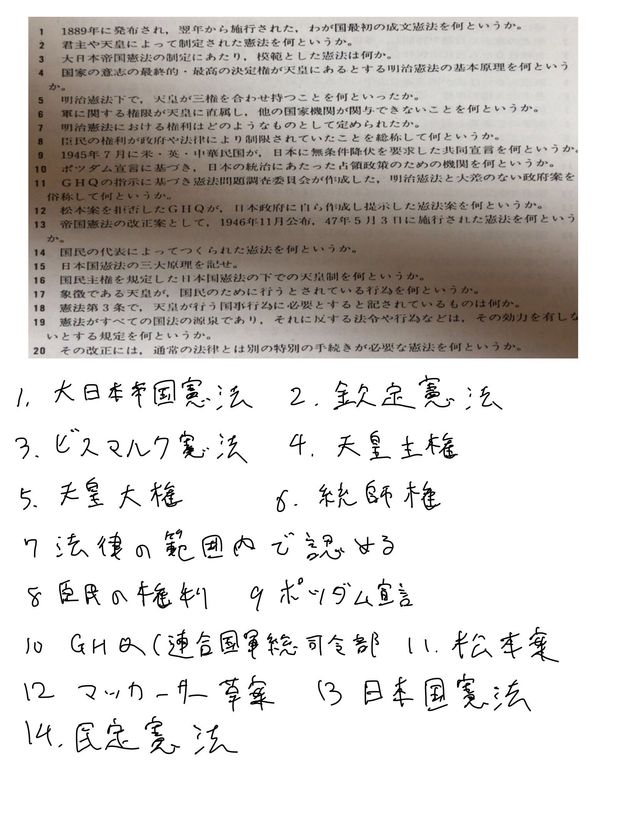 1 1889年に発布され，翌年から施行された，わが国最初の成文憲法を何というか。
2 君主や天皇によって制定された憲法を何というか。
3 大日本帝国憲法の制定にあたり，模範とした憲法は何か。
4 国家の意志の最終的・最高の決定権が天皇にあるとする明治憲法の基本原理を何という
か。
5 明治憲法下で，天皇が三権を合わせ持つことを何といったか。
6 軍に関する権限が天皇に直属し，他の国家機関が関与できないことを何というか。
7 明治憲法における権利はどのようなものとして定められたか。
8 臣民の権利が政府や法律により制限されていたことを総称して何というか。
9 1945年7月に米・英・中華民国が，日本に無条件降伏を要求した共同宣言を何というか。
10 ポツダム宣言に基づき，日本の統治にあたった占領政策のための機関を何というか。
11 GHQの指示に基づき憲法問題調査委員会が作成した，明治憲法と大差のない政府案を
俗称して何というか。
12 松本案を拒否したGHQが，日本政府に自ら作成し提示した憲法案を何というか。
13 帝国憲法の改正案として，1946年11月公布，47年5月3日に施行された憲法を何という
か。
14 国民の代表によってつくられた憲法を何というか。
15 日本国憲法の三大原理を記せ。
16 国民主権を規定した日本国憲法の下での天皇制を何というか。
17 象徴である天皇が，国民のために行うとされている行為を何というか。
18 憲法第3条で，天皇が行う国事行為に必要とすると記されているものは何か。
19 憲法がすべての国法の源泉であり，それに反する法令や行為などは，その効力を有しな
いとする規定を何というか。
20 その改正には，通常の法律とは別の特別の手続きが必要な憲法を何というか。
1, 大日本帝国憲法 2. 欽定憲法
3. ビスマルク憲法 4. 天皇主権
5. 天皇大権 6. 統師権
7 法律の範囲内で認める
8 臣民の権利 9 ポツダム宣言
10 GHQ(連合国軍総司令部 11. 松本案
12 マッカーター草案 13 日本国憲法
14. 民定憲法